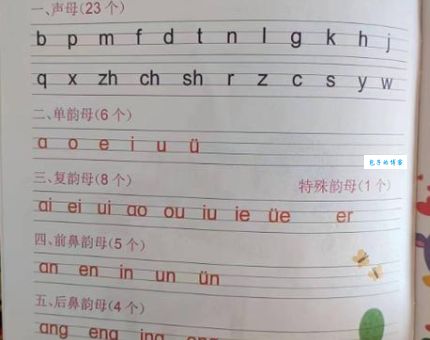 一、声母(23个)
b p m f d t n l g k h j
q x zh ch sh r z c s y w
二、单韵母(6个)
a o e i u ü
三、复韵母(8个) 特殊韵母(1个)
ai ei ui ao ou iu ie üe er
四、前鼻韵母(5个)
an en in un ün
五、后鼻韵母(4个)
ang eng ing ong
包子的博客